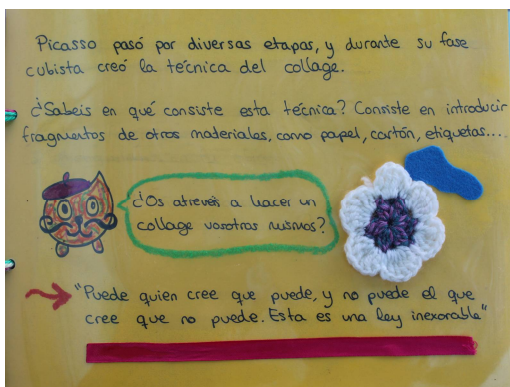 Picasso pasó por diversas etapas, y durante su fase
cubista creó la técnica del collage.
¿Sabeis en qué consiste esta técnica? Consiste en introducir
fragmentos de otros materiales, como papel, cartón, etiquetas....
¿Os atreveis a hacer un
collage vosotros mismos?
"Puede quien cree que puede, y no puede el que
cree que no puede. Esta es una ley inexorable"